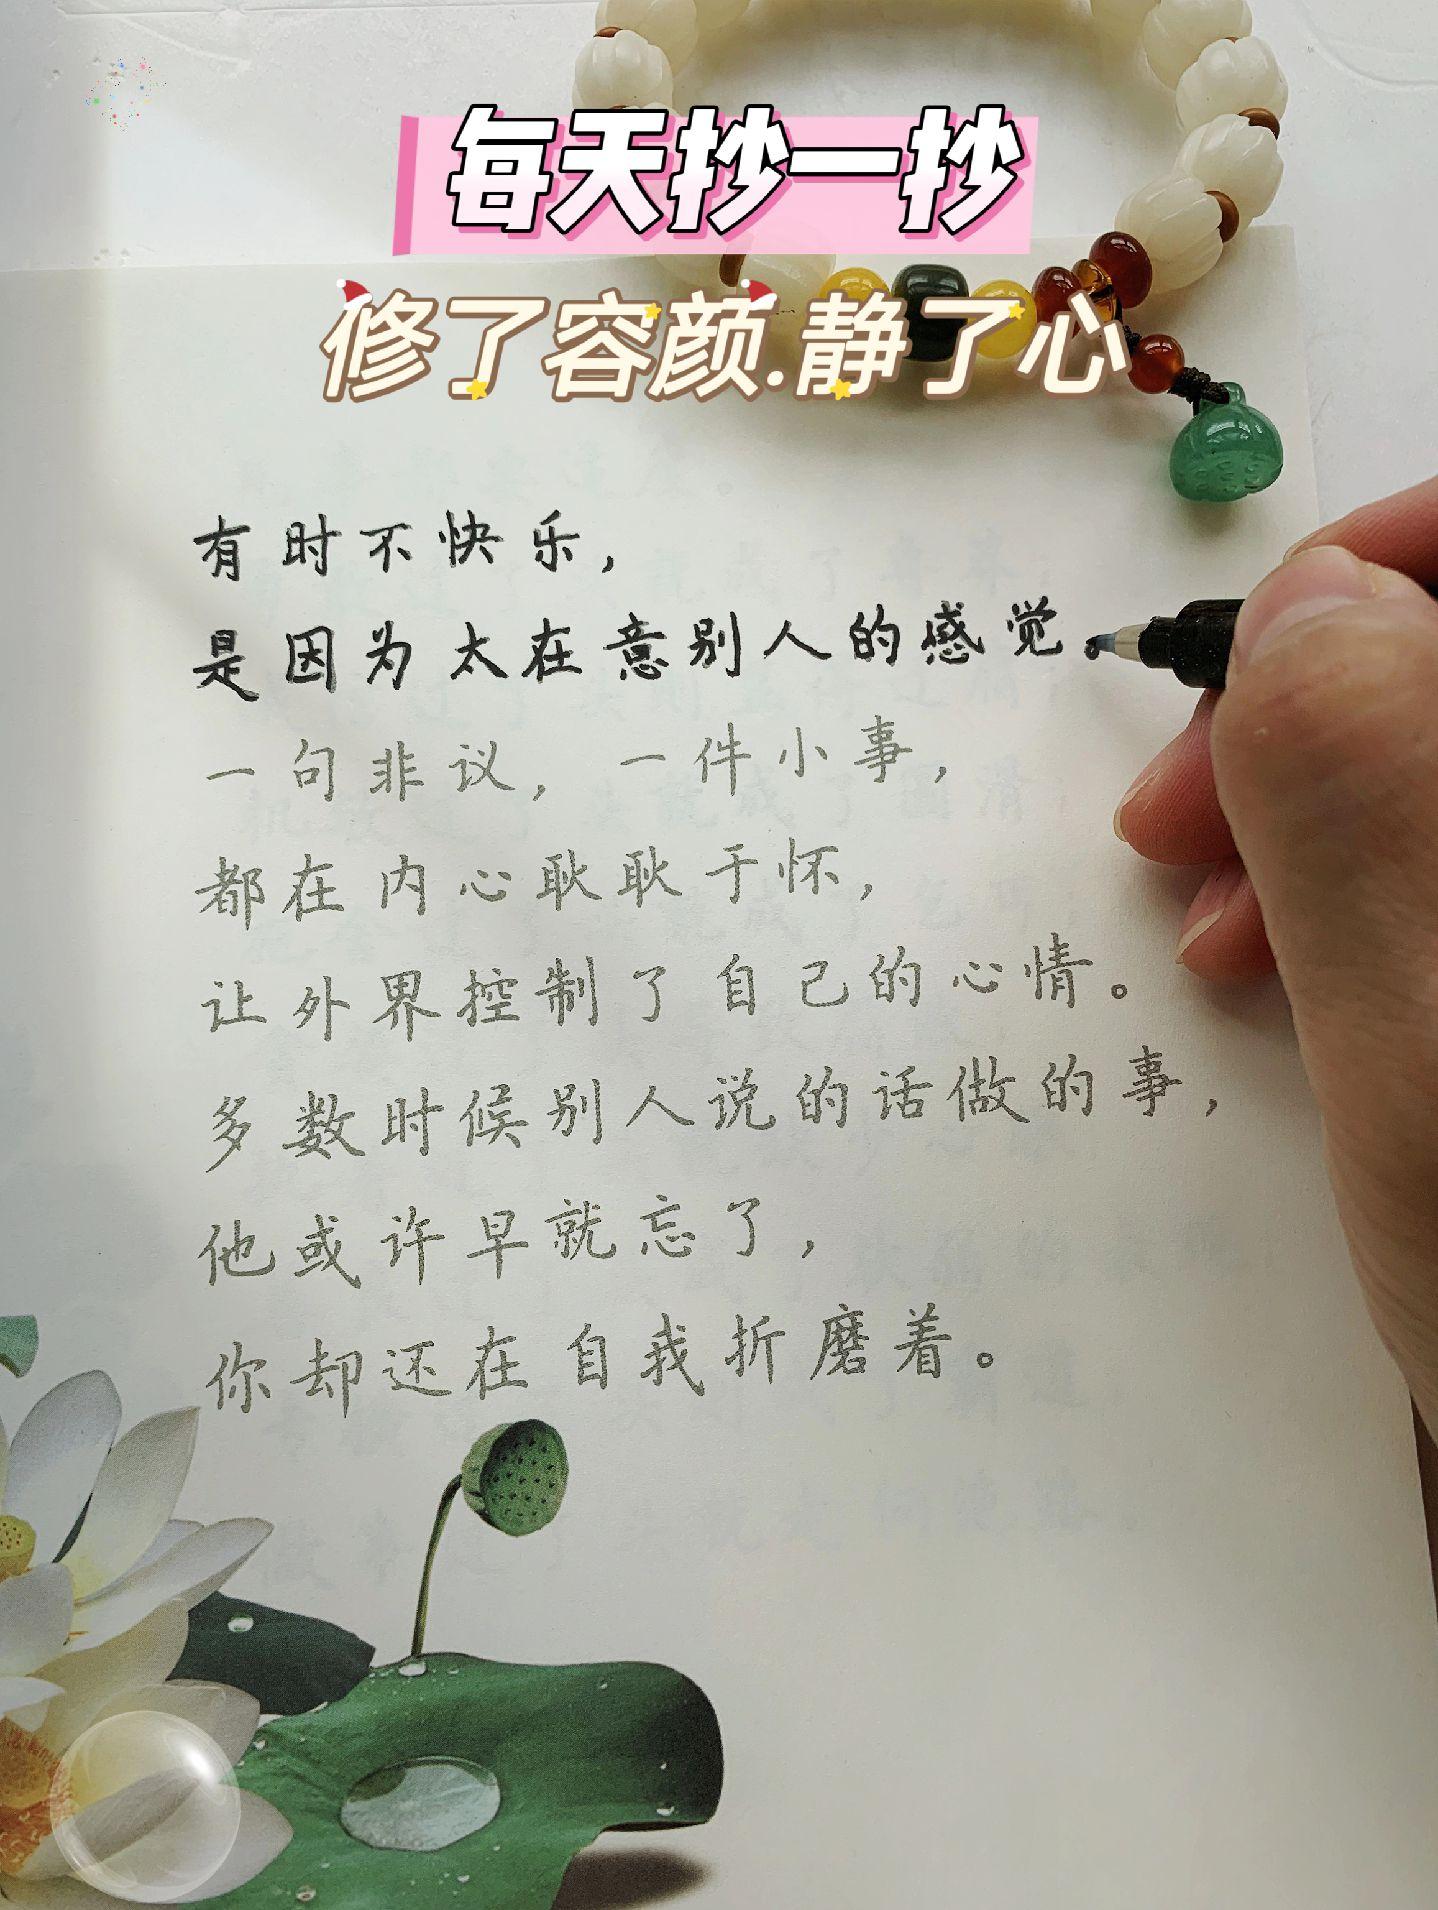 每天抄一抄
修了容颜.静了心
有时不快乐,
是因为太在意别人的感觉。
一句非议,一件小事,
都在内心耿耿于怀,
让外界控制了自己的心情。
多数时候别人说的话做的事,
他或许早就忘了,
你却还在自我折磨着。